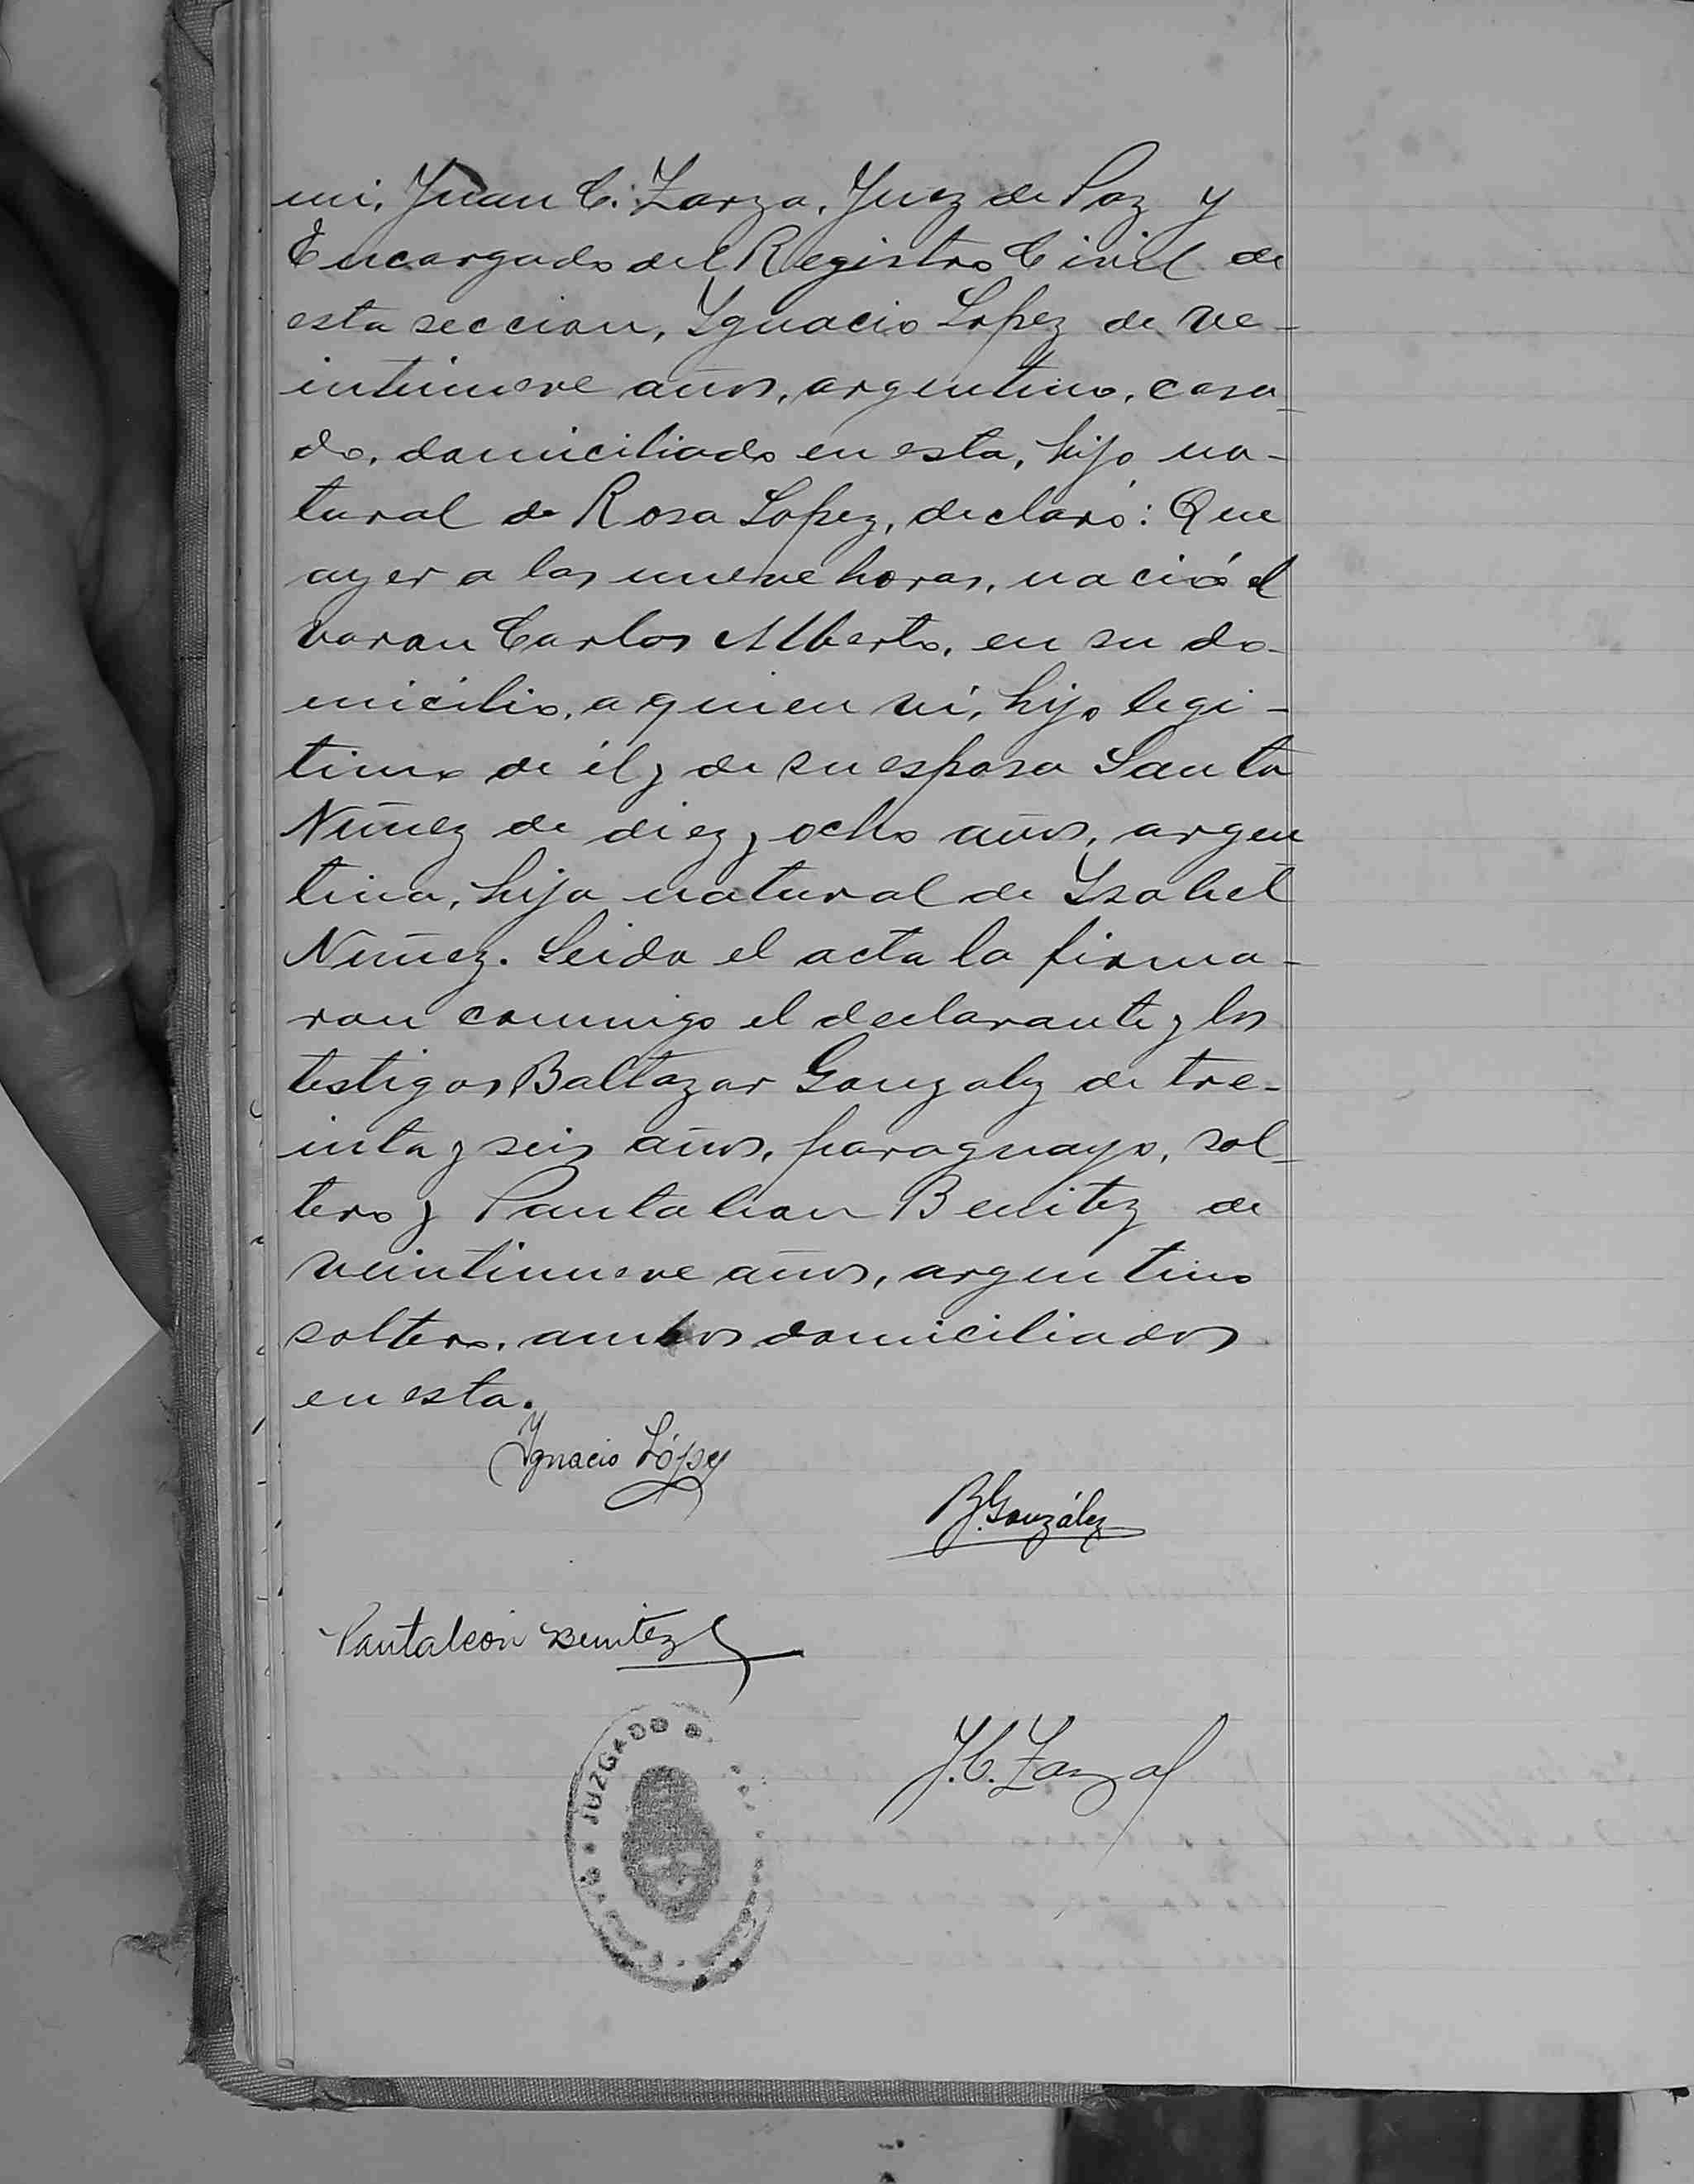 mi, Juan C. Zarza, Juez de Paz y
Encargado del Registro Civil de
esta seccion, Ygnacio Lopez de ve-
intinueve años, argentino, casa-
do, domiciliado en esta, hijo na-
tural de Rosa Lopez, declaró: Que
ayer a las nueve horas, nació el
varon Carlos Alberto, en su do-
micilio, a quien ví, hijo legi-
timo de él y de su esposa Santa
Núñez de diez y ocho años, argen
tina, hija natural de Ysabel
Nuñez. Leida el acta la firma-
ron conmigo el declarante y los
testigos Baltazar Gonzalez de tre-
inta y seis años, paraguayo, sol-
tero y Pantaleon Benitez de
veintinueve años, argentino
soltero, ambos domiciliados
en esta.
Ygnacio López
B. González
Pantaleón Benitez
J. C. Zarza
JUZGADO